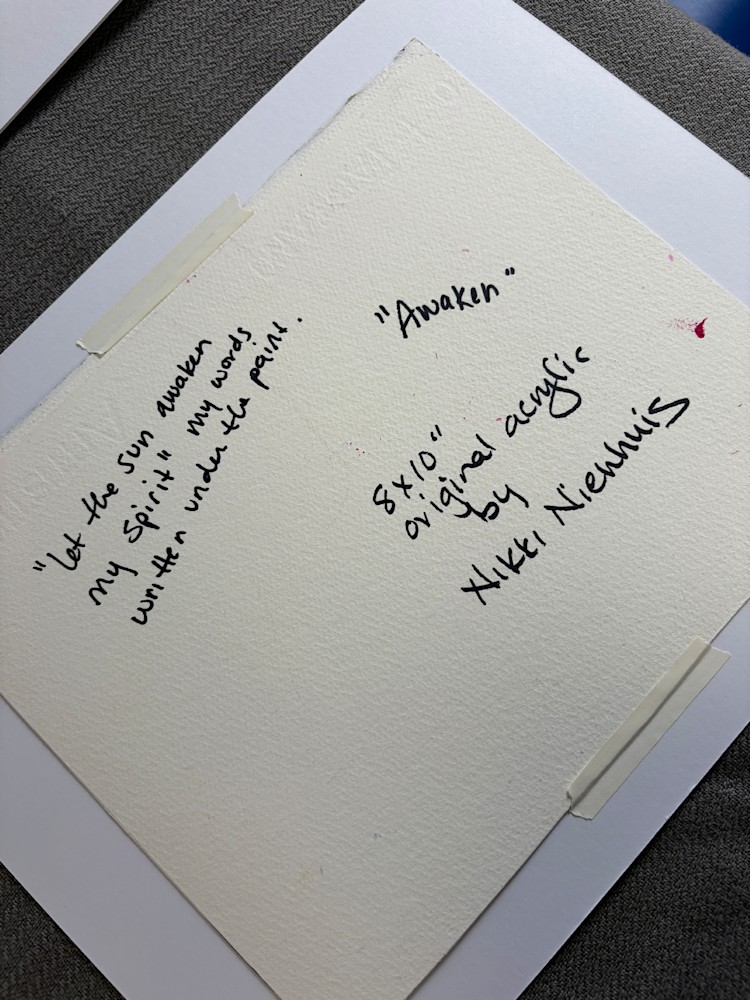 "Awaken"
8x10"
original acrylic
by
Nikki Nienhuis
"Let the sun awaken
my spirit" my words
written under the paint.